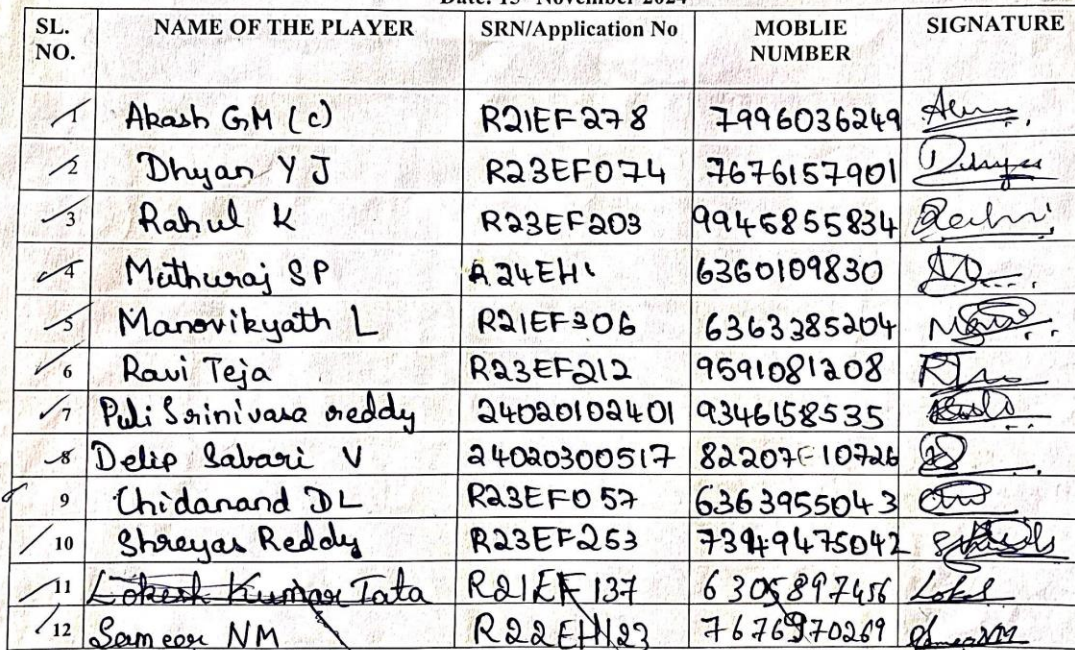 Date: 13 November 2024
SL. NO. NAME OF THE PLAYER SRN/Application No MOBLIE NUMBER SIGNATURE
1 Akash G.M (c) R21EF278 7996036249
2 Dhyan Y J R23EF074 7676157901
3 Rahul K R23EF203 9945855834
4 Muthuraj SP R24EH 6360109830
5 Manovikyath L R21EF306 6363385204
6 Ravi Teja R23EF212 9591081208
7 Puli Srinivasa reddy 24020102401 9346158535
8 Delip Sabari V 24020300517
9 Chidanand DL R23EF057 6363955043
10 Shreyas Reddy R23EF253
11 Lokesh Kumar Tata R21EF137 6305897456
12 Sameer NM R22EH123 7676970269